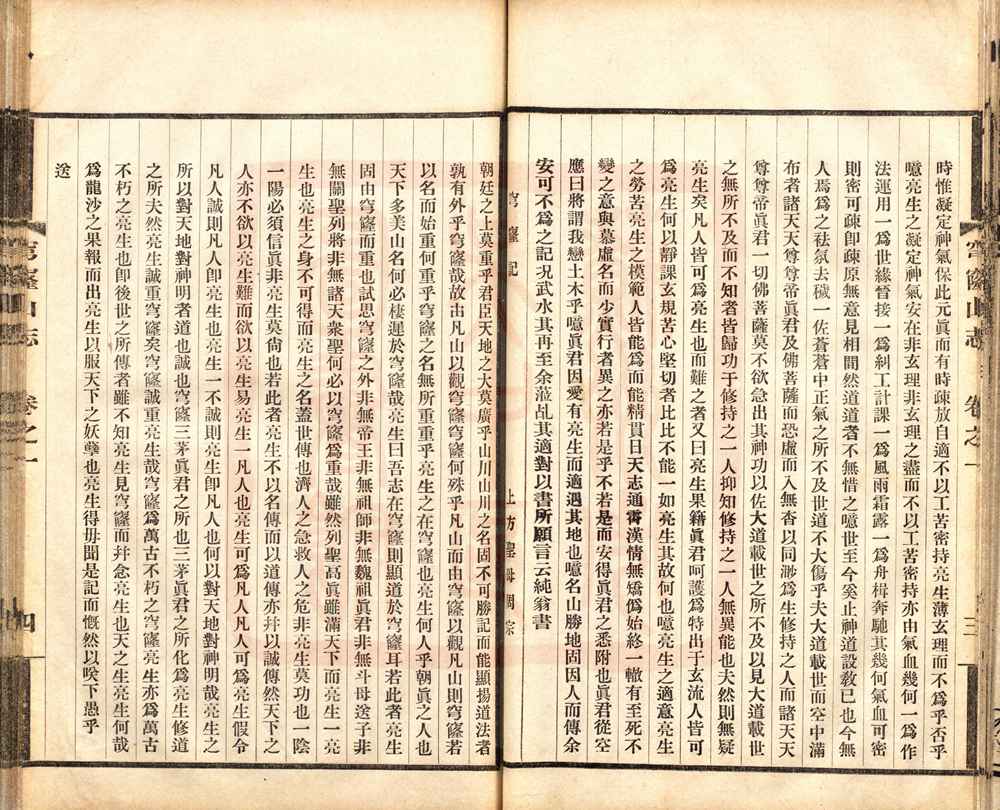 時惟凝定神氣保此元眞而有時疎放自適不以工苦密持亮生薄玄理而不爲乎否乎
噫亮生之凝定神氣安在非玄理非玄理之盡而不以工苦密持亦由氣血幾何一爲作
法運用一爲世緣晉接一爲糾工計課一爲風雨霜露一爲舟楫奔馳其幾何氣血可密
則密可疎即疎原無意見相間然道道者不無惜之噫世至今矣止神道設敎已也今無
人焉爲之祛氛去穢一佐蒼蒼中正氣之所不及世道不大傷乎夫大道載世而空中滿
布者諸天天尊尊帝眞君及佛菩薩而恐虛而入無杳以同渺爲生修持之人而諸天天
尊尊帝眞君一切佛菩薩莫不欲急出其神功以佐大道載世之所不及以見大道載世
之無所不及而不知者皆歸功于修持之一人抑知修持之一人無異能也夫然則無疑
亮生矣凡人皆可爲亮生也而難之者又曰亮生果籍眞君呵護爲特出于玄流人皆可
爲亮生何以靜課玄規苦心堅切者比比不能一如亮生其故何也噫亮生之適意亮生
之勞苦亮生之模範人皆能爲而能精貫日天志通霄漢情無矯僞始終一轍有至死不
變之意與慕虛名而少實行者異之亦若是乎不若是而安得眞君之悉附也眞君從空
應曰將謂我戀土木乎噫眞君因愛有亮生而適遇其地也噫名山勝地固因人而傳余
安可不爲之記况武水其再至余蒞乩其適對以書所願言云純翁書
穹窿記
上方聖母周宗
朝廷之上莫重乎君臣天地之大莫廣乎山川山川之名固不可勝記而能顯揚道法者
孰有外乎穹窿哉故由凡山以觀穹窿何殊乎凡山而由穹窿以觀凡山則穹窿若
以名而始重何重乎穹窿之名無所重重乎亮生之在穹窿也亮生何人乎朝眞之人也
天下多美山名何必棲遲於穹窿哉亮生曰吾志在穹窿則顯道於穹窿耳若此者亮生
固由穹窿而重也試思穹窿之外非無帝王非無祖師非無魏祖眞君非無斗母送子非
無關聖列將非無諸天衆聖何必以穹窿爲重哉雖然列聖高眞雖滿天下而亮生一亮
生也亮生之身不可得而亮生之名蓋世傳也濟人之急救人之危非亮生莫功也一陰
一陽必須信眞非亮生莫尙也若此者亮生不以名傳而以道傳亦幷以誠傳然天下之
人亦不欲以亮生難而欲以亮生易亮生一凡人也亮生可爲凡人凡人可爲亮生假令
凡人人誠則凡人卽亮生也亮生一不誠則亮生卽凡人也何以對天地對神明哉亮生之
所以對天地對神明者道也誠也穹窿三茅眞君之所也三茅眞君之所化爲亮生修道
之所夫然亮生誠重穹窿矣穹窿誠重亮生哉穹窿爲萬古不朽之穹窿亮生亦爲萬古
不朽之亮生也卽後世之所傳者雖不知亮生見穹窿而幷念亮生也天之生亮生何哉
爲龍沙之果報而出亮生以服天下之妖孽也亮生得毋聞是記而慨然以唉下愚乎
送
穹窿山志
卷之一
三
穹窿山志
卷之一
四